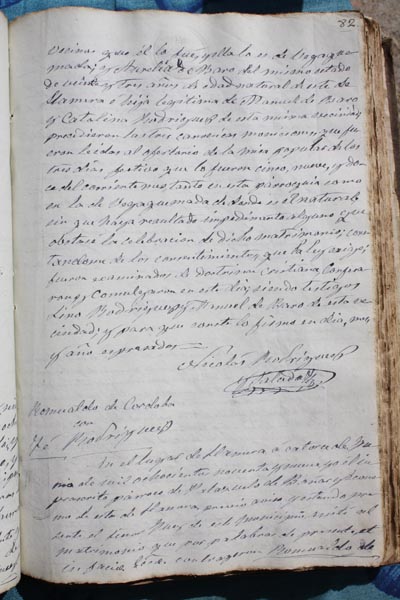 82
vecinos que él lo fue, y ella la es de Vegaque-
mada; y Aurelia de Baro del mismo estado
de veinte y tres años de edad natural de esta de
Llamera e hija legitima de Manuel de Baro
y Catalina Rodriguez de esta misma vecindad;
precedieron las tres canonicas moniciones que fu-
eron leidas al ofertorio de la misa popular de los
tres dias festivos que lo fueron cinco, nueve, y do-
ce del corriente mes, tanto en esta parroquia como
en la de Vegaquemada de donde es el natural
sin que haya resultado impedimento alguno que
obstase la celebracion de dicho matrimonio; cons-
tandome de los consentimientos que la ley exige;
fueron examinados de doctrina cristiana, confesa-
ron y comulgaron en este dia, siendo testigos
Lino Rodriguez y Manuel de Baro de esta ve-
cindad, y para que conste lo firmo en dia, mes
y año expresados
Nicolás Rodriguez
Romualdo de Cordoba
con
Rodriguez
En el lugar de Llamera á catorce de
de mil ochocientos noventa y nueve, yo el in-
frascrito párroco de Palazuelo de Boñar y Ecóno-
mo de esta de Llamera, previo aviso y estando pre-
sente el Señor Juez de este Municipio asisti al
matrimonio que por palabras de presente
contrageron Romualdo de